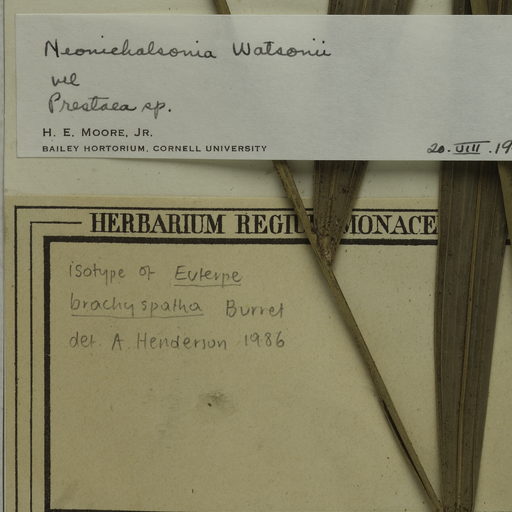 Neonicholsonia Watsonii
vel
Prestoea sp.
H. E. MOORE, JR.
BAILEY HORTORIUM, CORNELL UNIVERSITY
20.VIII.19
HERBARIUM REGIU MONACE
isotype of Euterpe
brachyspatha Burret
det. A Henderson 1986